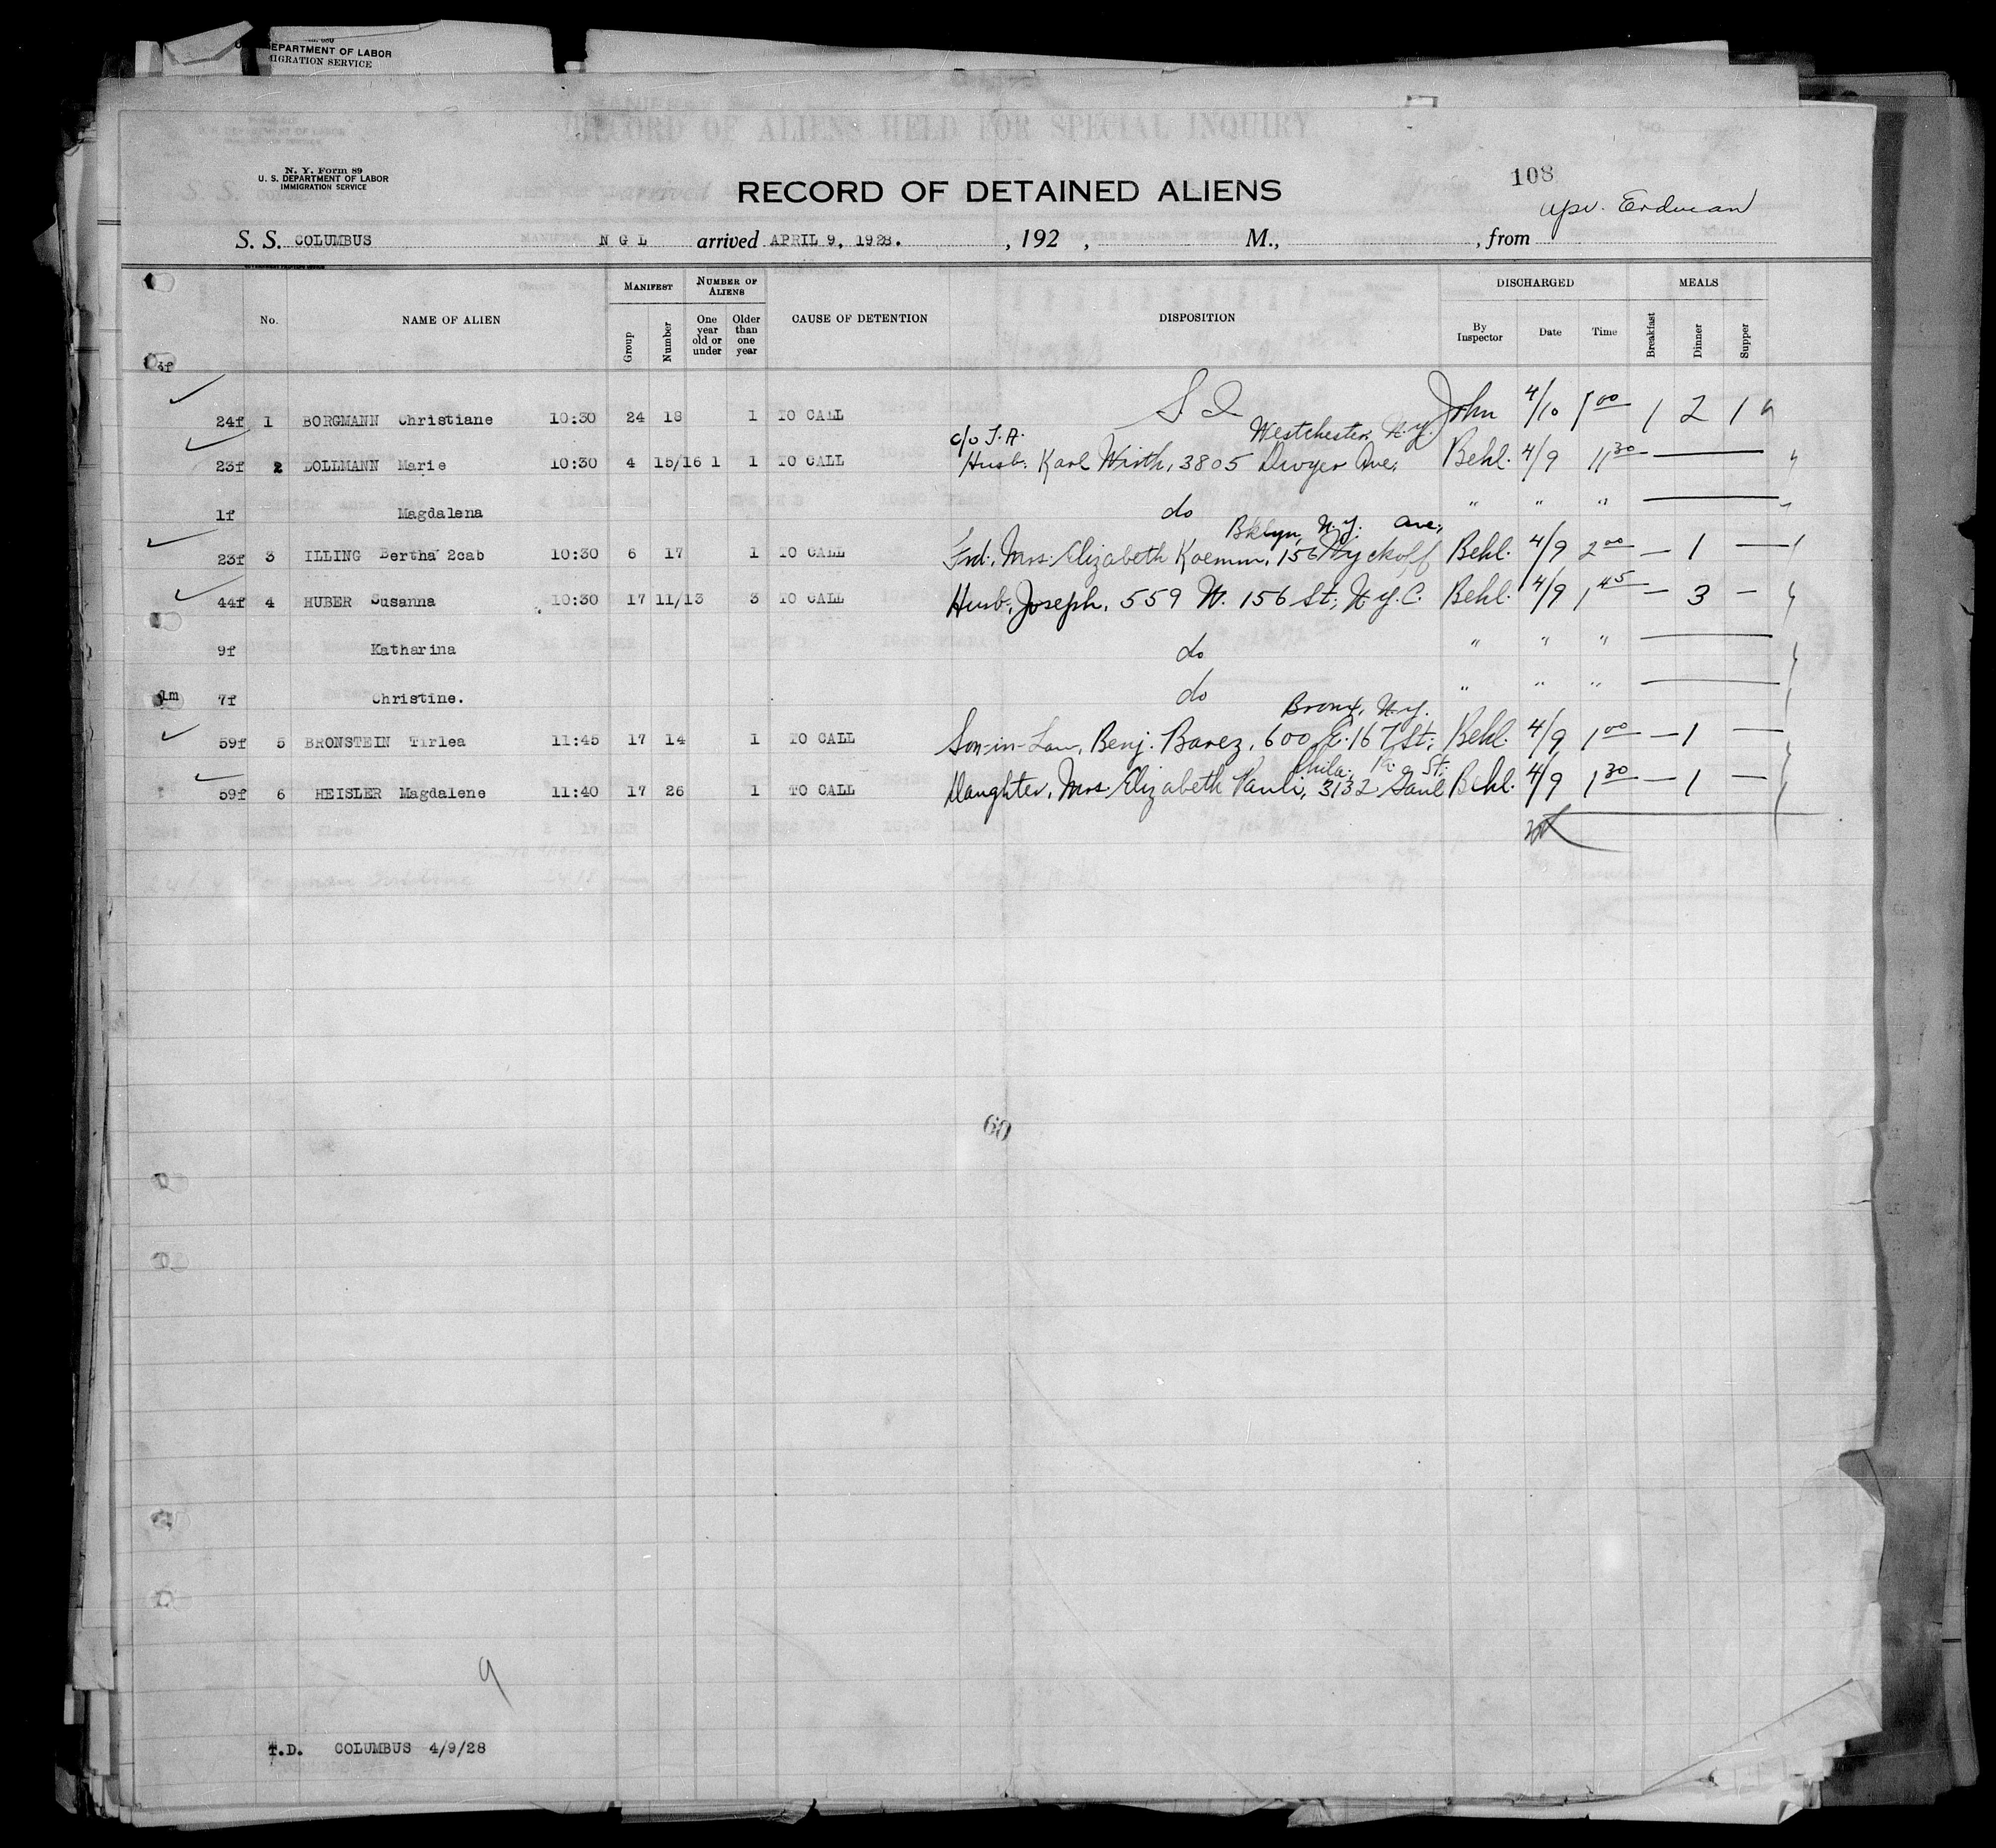 DEPARTMENT OF LABOR
MIGRATION SERVICE
RECORD OF ALIENS HELD FOR SPECIAL INQUIRY
N. Y. Form 89
U. S. DEPARTMENT OF LABOR
IMMIGRATION SERVICE
RECORD OF DETAINED ALIENS
108
Erdman
S. S. COLUMBUS N G L arrived APRIL 9, 1928. , 192 , M., , from
No. NAME OF ALIEN MANIFEST Group Number NUMBER OF ALIENS One year old or under Older than one year CAUSE OF DETENTION DISPOSITION DISCHARGED By Inspector Date Time MEALS Breakfast Dinner Supper
24f 1 BORGMANN Christiane 10:30 24 18 1 TO CALL S I John 4/10 1 2 1
c/o J.A. Westchester, N.Y.
23f 2 DOLLMANN Marie 10:30 4 15/16 1 1 TO CALL Husb. Karl Wirth, 3805 Dwyer Ave, Behl. 4/9 11 30 —
1f Magdalena do " " " —
Bklyn, N.Y. Ave,
23f 3 ILLING Bertha 2cab 10:30 6 17 1 TO CALL Frd. Mrs. Elizabeth Kaemm, 156 Wyckoff Behl. 4/9 2 00 — 1 —
44f 4 HUBER Susanna 10:30 17 11/13 3 TO CALL Husb. Joseph, 559 W. 156 St; N.Y.C. Behl. 4/9 1 45 — 3 —
9f Katharina do " " " —
1m 7f Christine. do " " " —
Bronx, N.Y.
59f 5 BRONSTEIN Tirlea 11:45 17 14 1 TO CALL Son-in-Law, Benj. Barez, 600 E. 167 St; Behl. 4/9 1 00 — 1 —
Phila. Pa. St.
59f 6 HEISLER Magdalene 11:40 17 26 1 TO CALL Daughter, Mrs. Elizabeth Pauli, 3132 Gaul Behl. 4/9 1 30 — 1 —
60
9
T.D. COLUMBUS 4/9/28